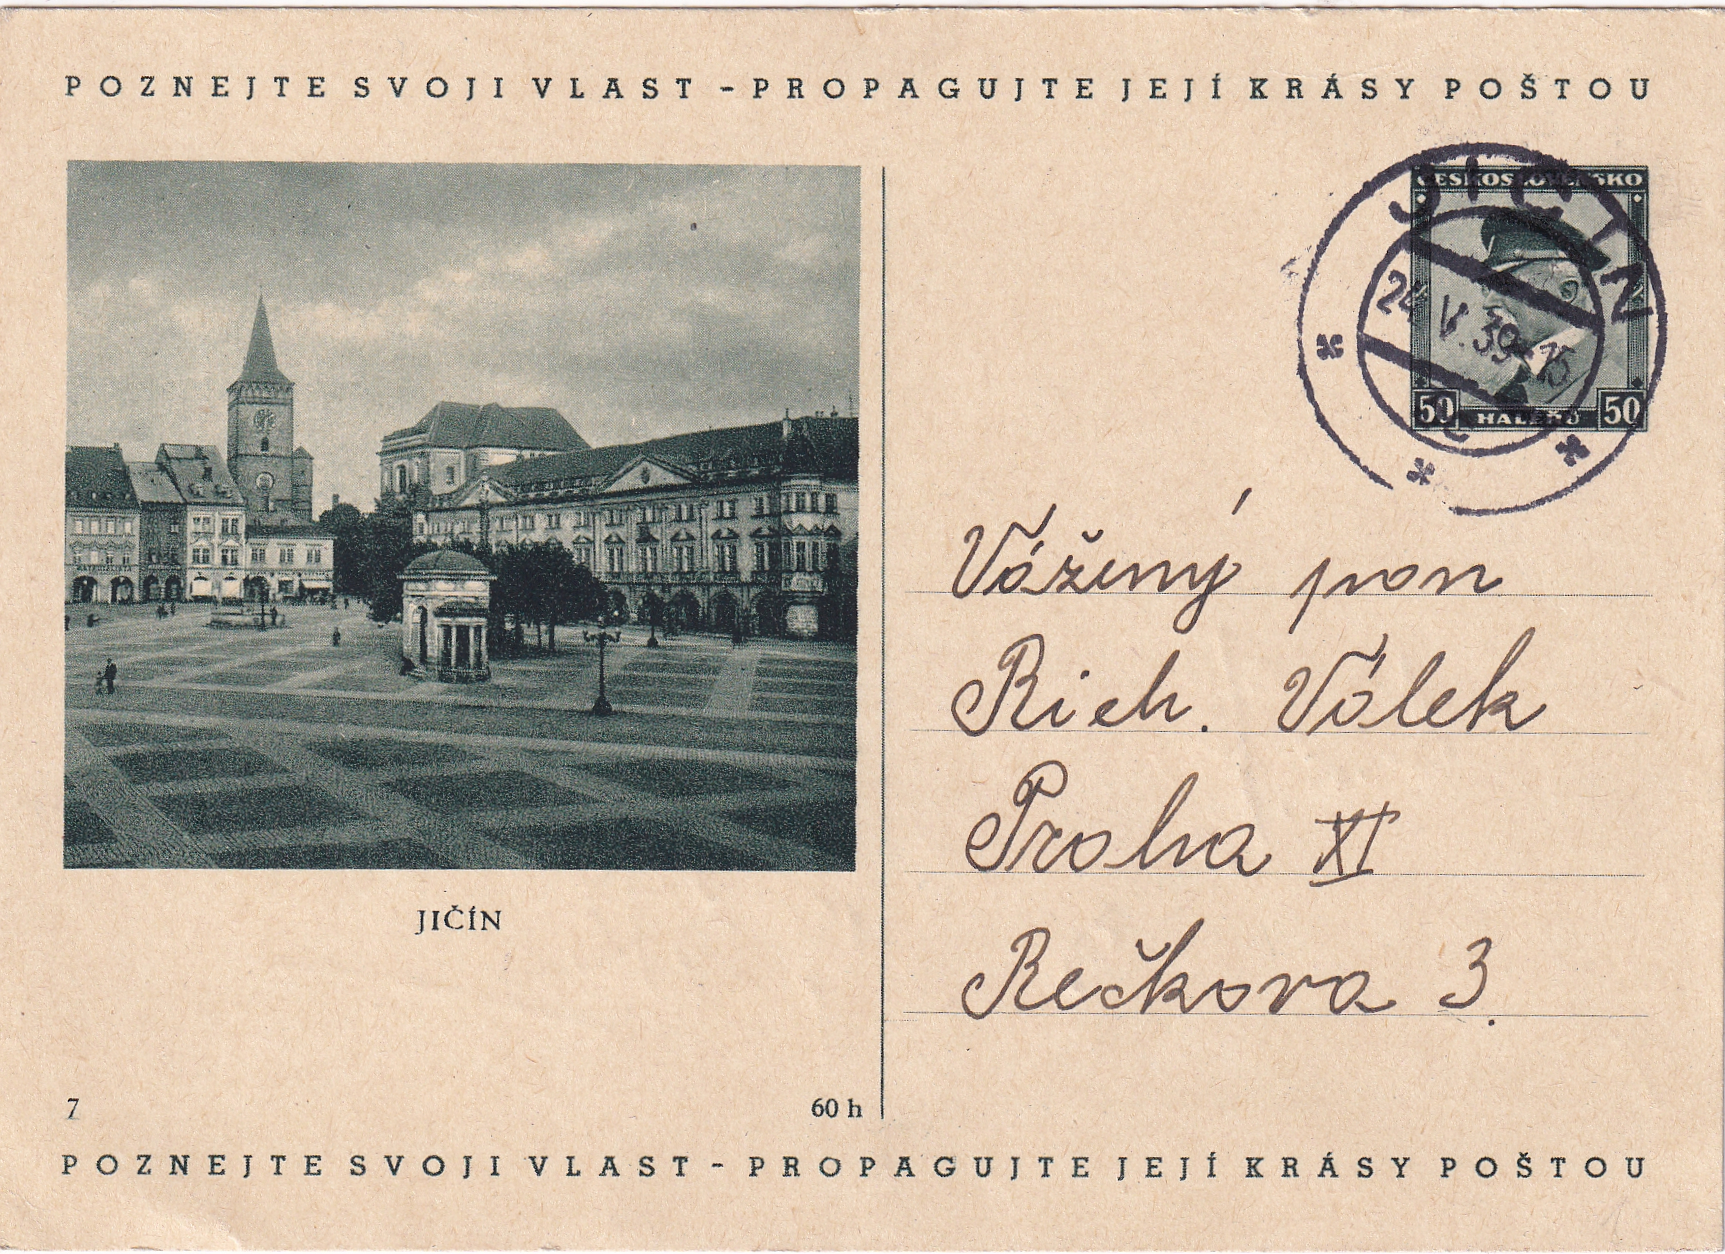 POZNEJTE SVOJI VLAST - PROPAGUJTE JEJÍ KRÁSY POŠTOU
ČESKOSLOVENSKO
JIČÍN
24.V.39-15
50 HALÉŘŮ 50
Vážený pan
Rich. Válek
Praha XI
Rečkova 3.
JIČÍN
7
60 h
POZNEJTE SVOJI VLAST - PROPAGUJTE JEJÍ KRÁSY POŠTOU